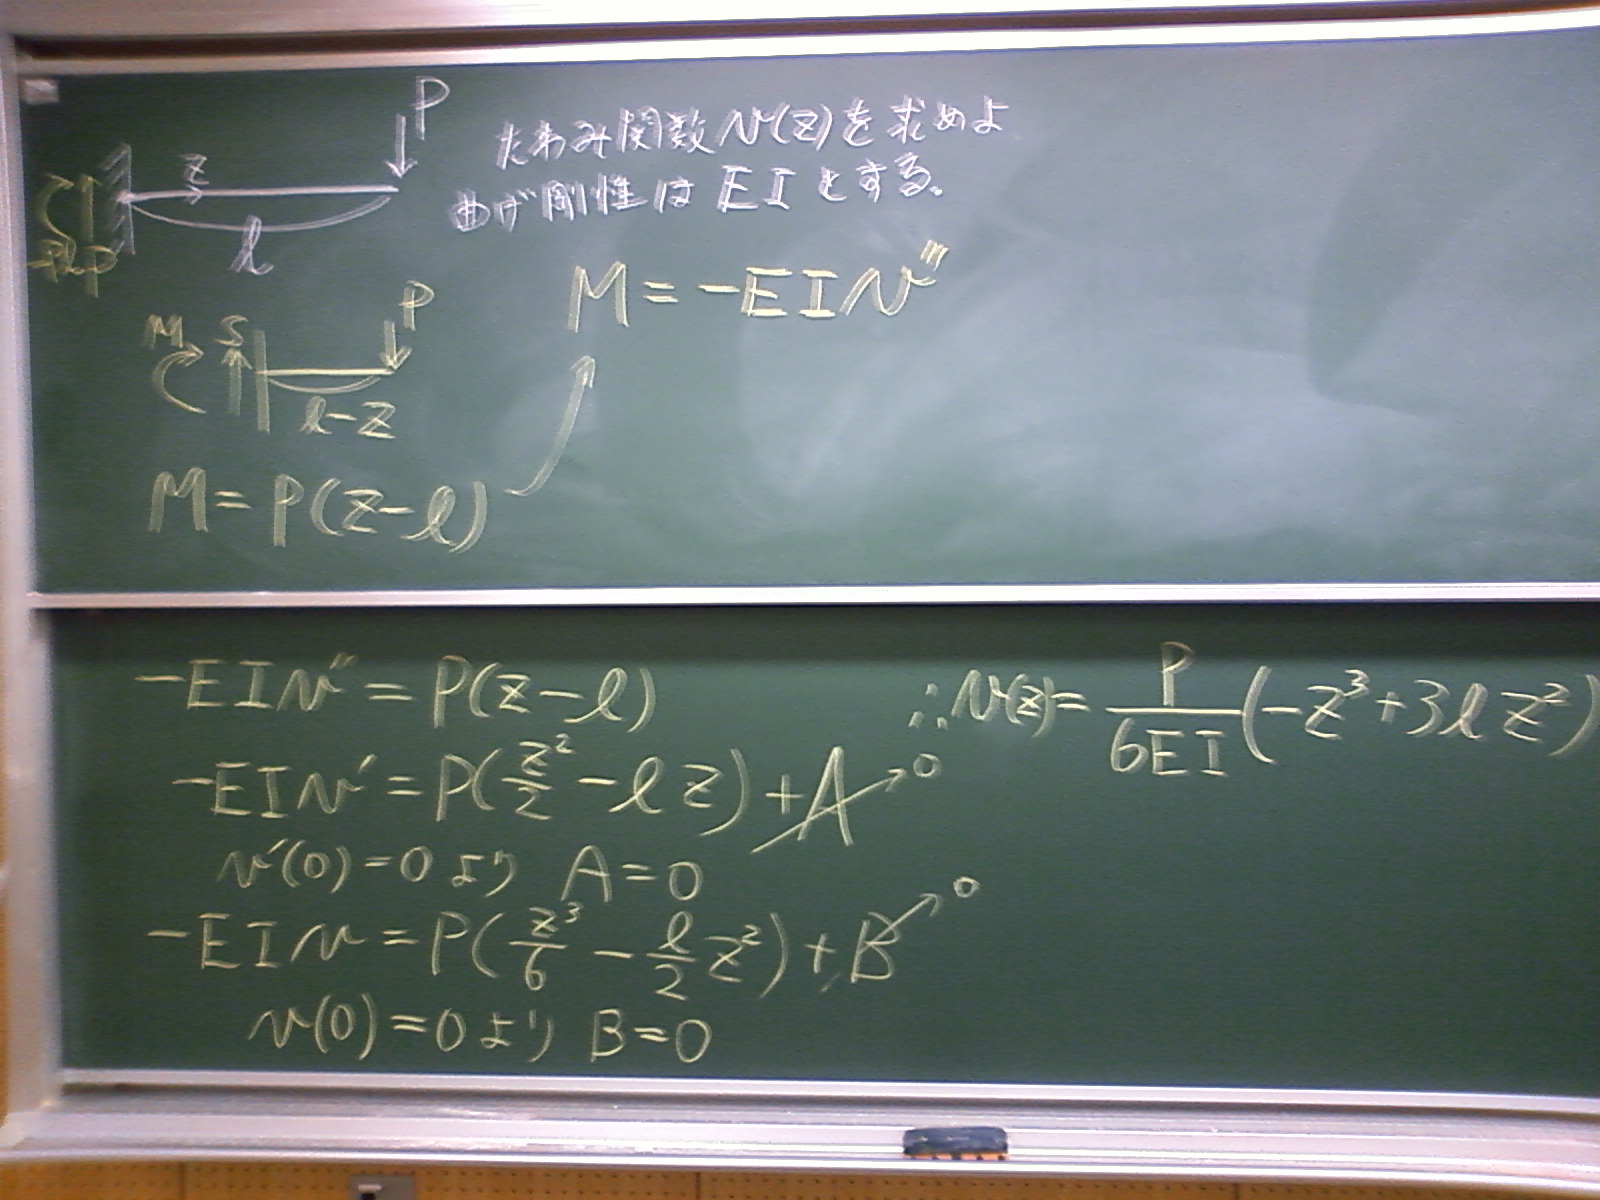 P
たわみ関数 v(z)を求めよ
曲げ剛性は EI とする。
z
l
-Pl P
M = -EIv'''
M S P
l-z
M = P(z-l)
-EIv'' = P(z-l)
-EIv' = P(z²/2 - lz) + A → 0
v'(0) = 0 より A = 0
-EIv = P(z³/6 - l/2 z²) + B → 0
v(0) = 0 より B = 0
∴ v(z) = P/6EI (-z³ + 3lz²)